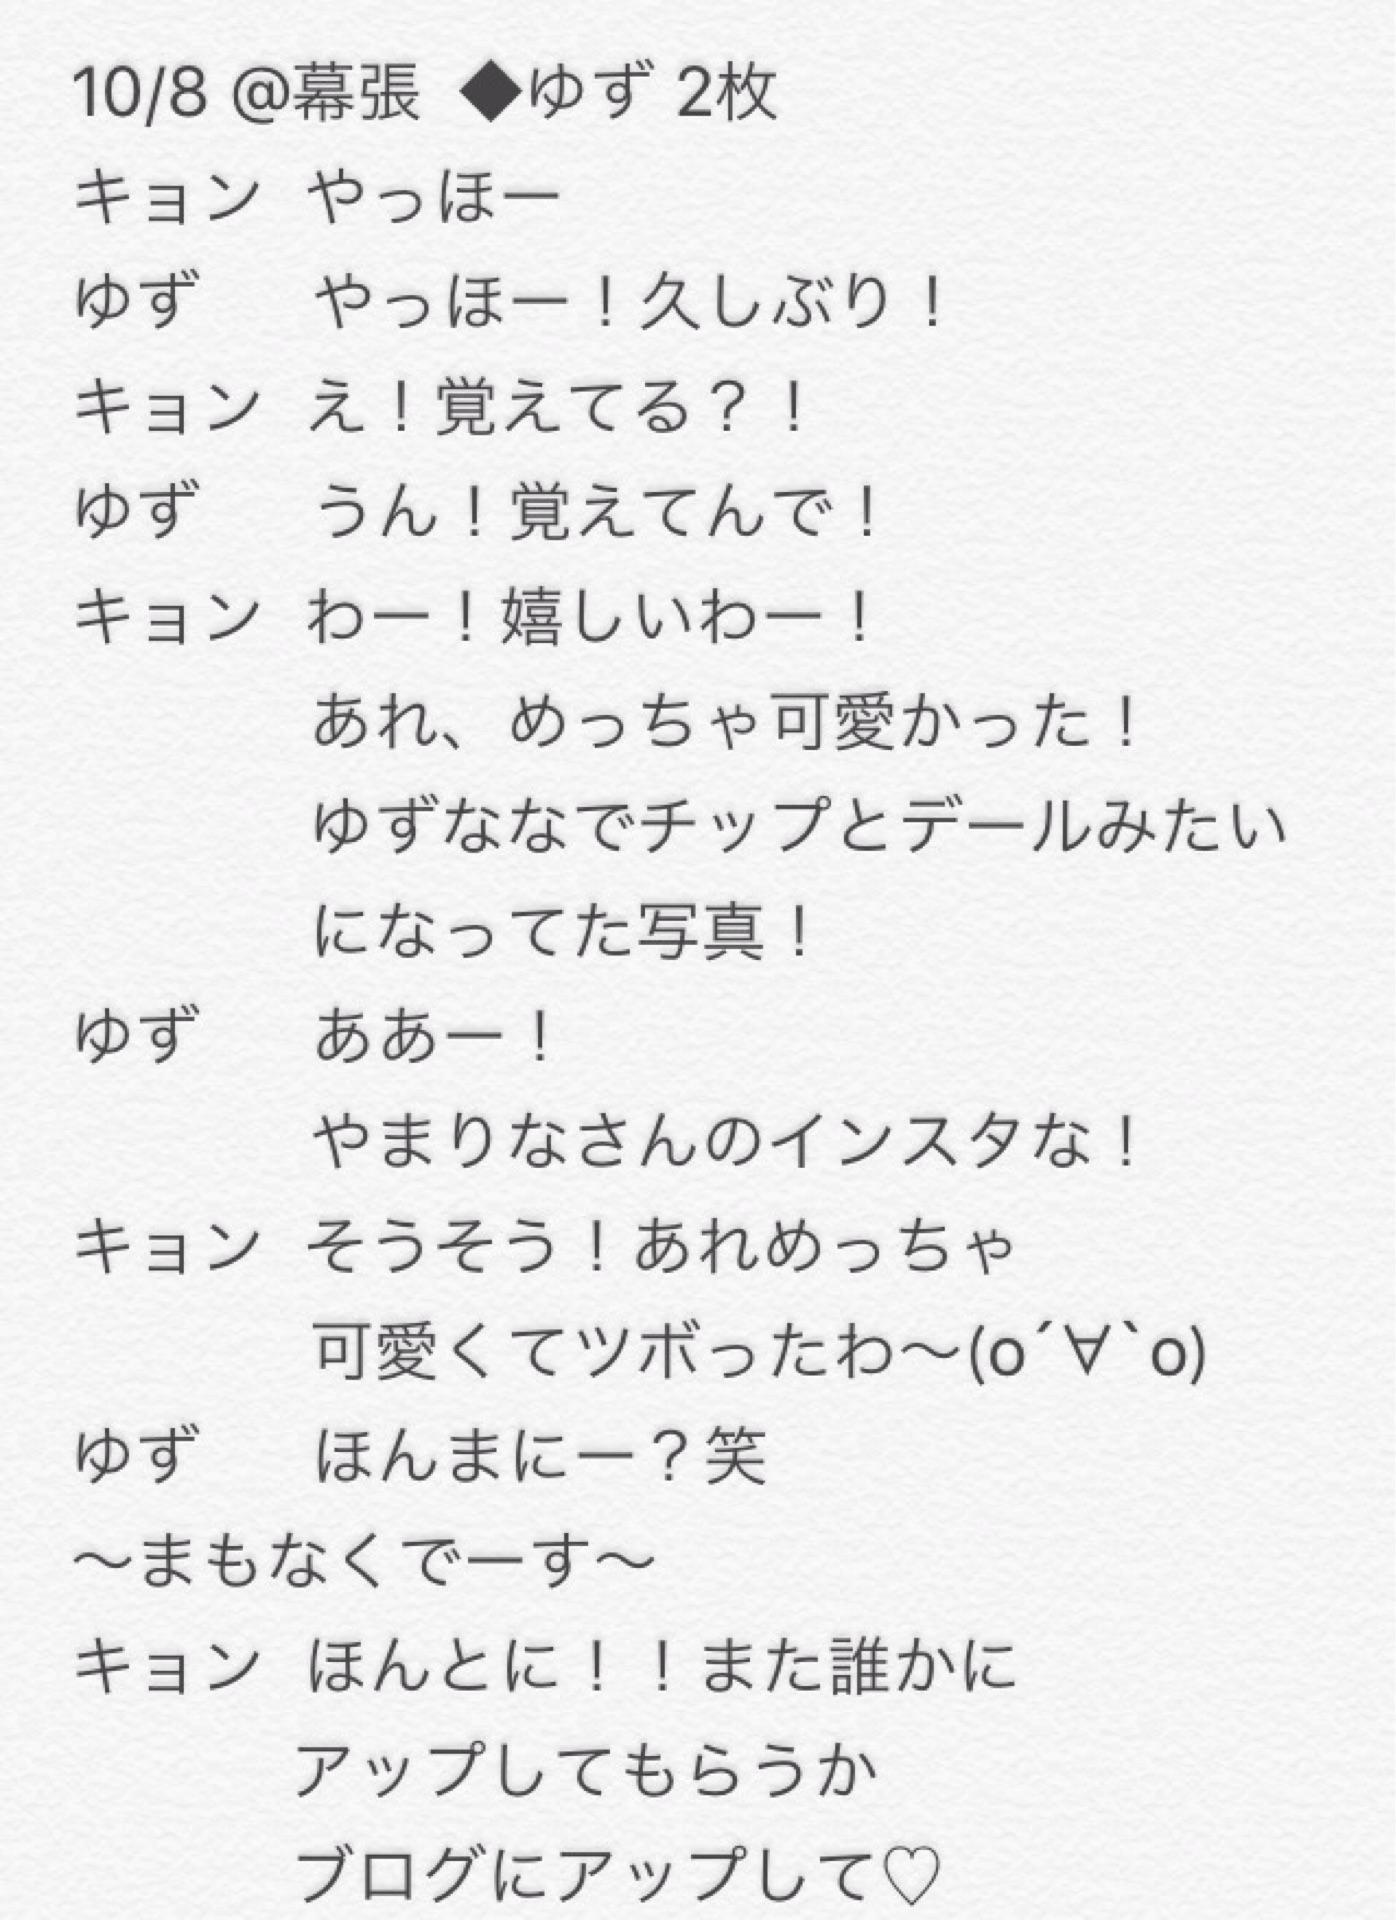 10/8 @幕張 ◆ゆず 2枚
キョン やっほー
ゆず やっほー！久しぶり！
キョン え！覚えてる？！
ゆず うん！覚えてんで！
キョン わー！嬉しいわー！
あれ、めっちゃ可愛かった！
ゆずななでチップとデールみたい
になってた写真！
ゆず ああー！
やまりなさんのインスタな！
キョン そうそう！あれめっちゃ
可愛くてツボったわ〜(о´∀`о)
ゆず ほんまにー？笑
〜まもなくでーす〜
キョン ほんとに！！また誰かに
アップしてもらうか
ブログにアップして♡